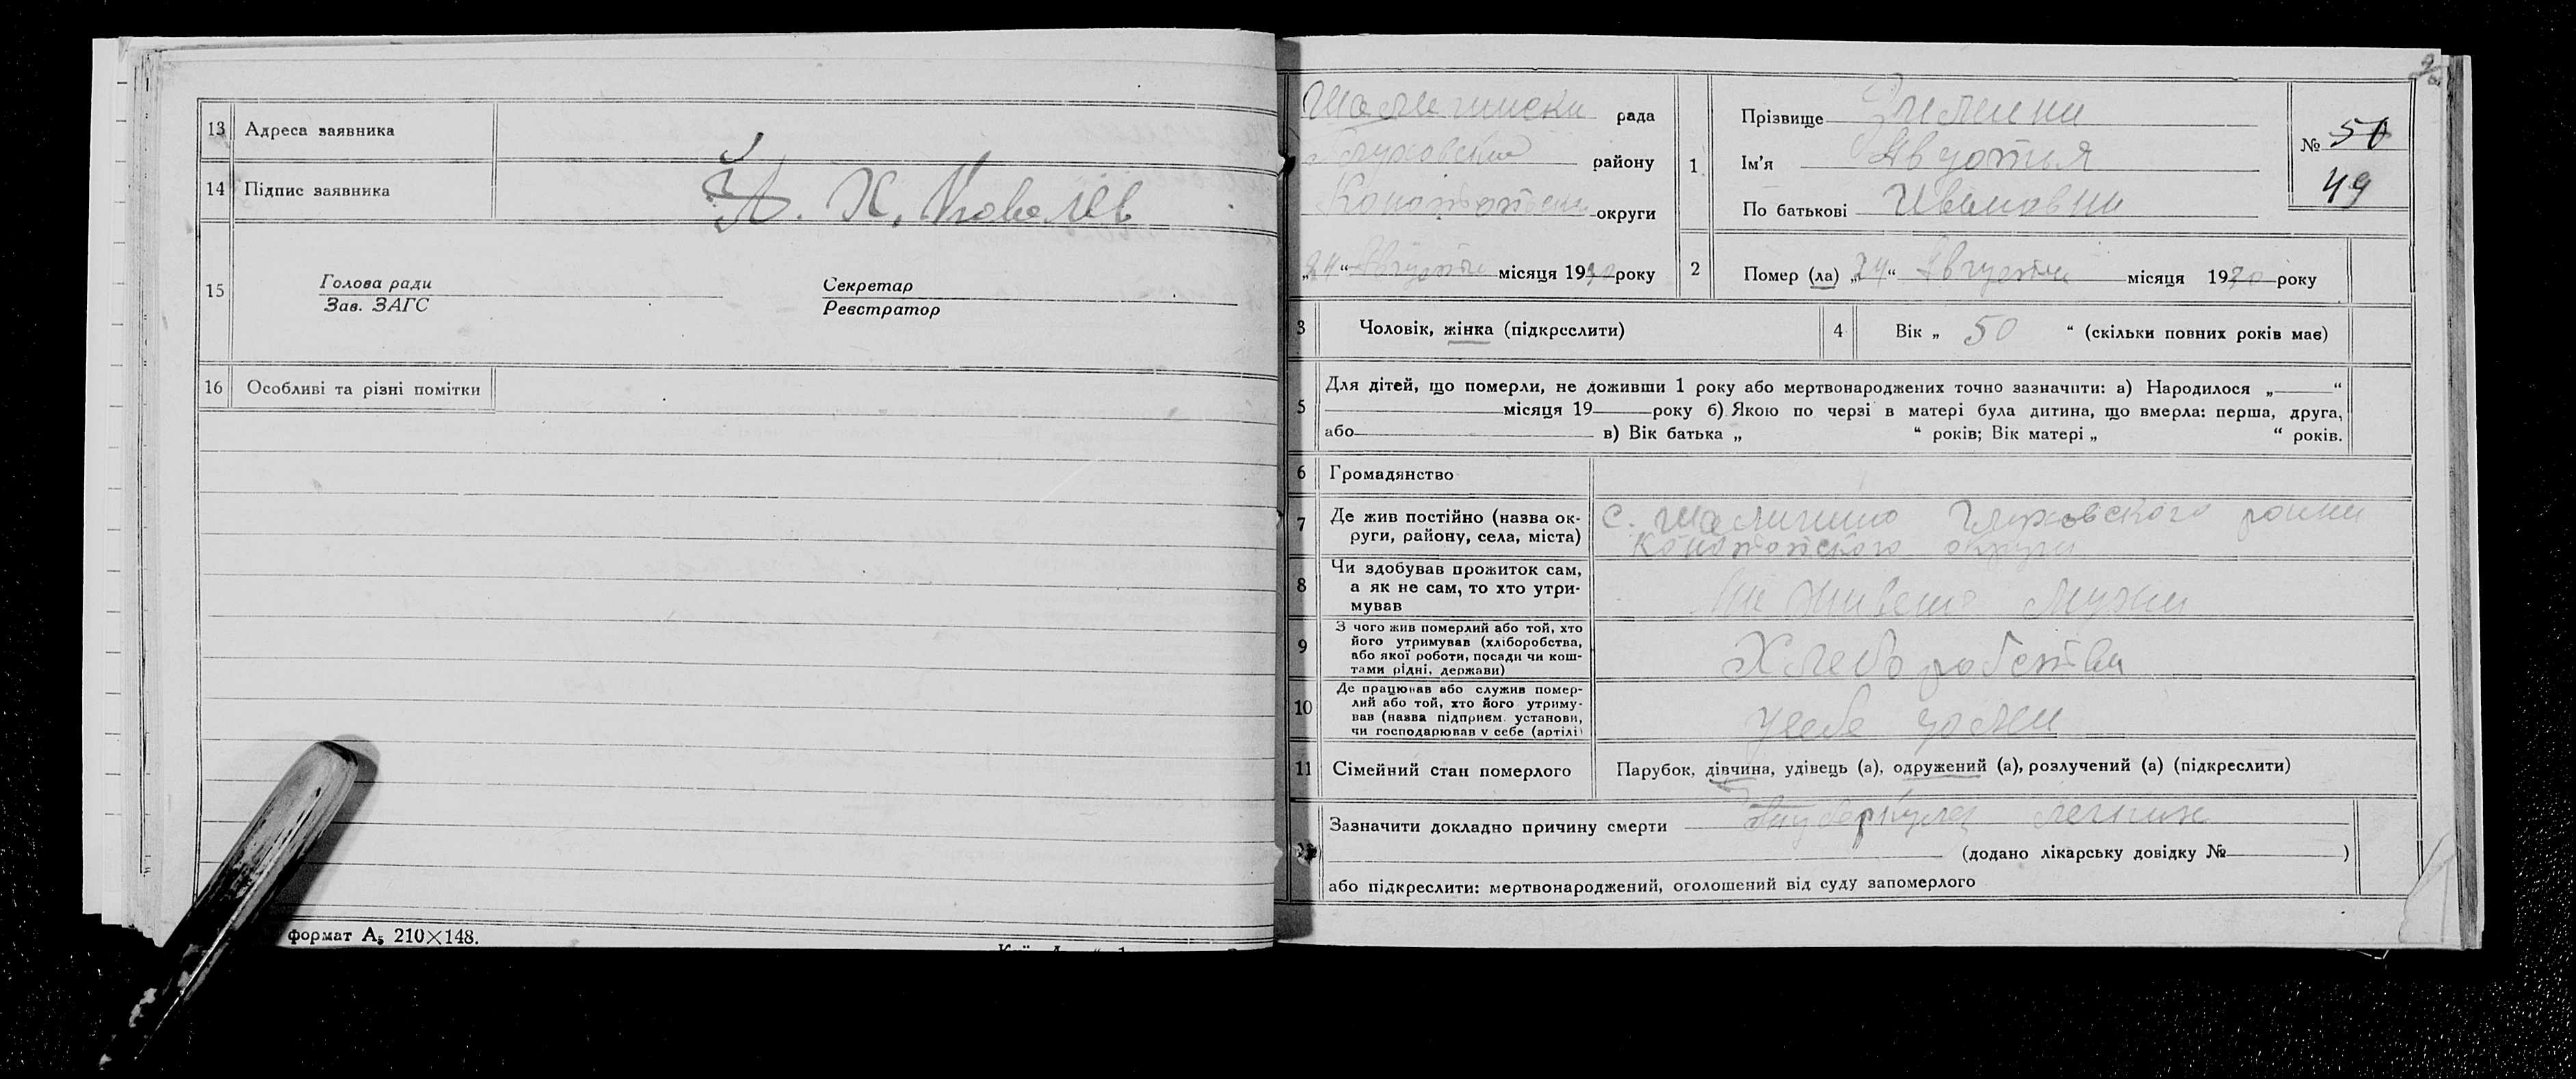 13 Адреса заявника
14 Підпис заявника А. Х. Ковалёв
15 Голова ради Секретар
Зав. ЗАГС Реєстратор
16 Особливі та різні помітки
формат А5 210×148.
рада
району
округи
„24“ Августа місяця 1930 року
1 Прізвище
Ім’я Авдотья
По батькові Ивановна
№ 50
49
2 Помер (ла) „24“ Августа місяця 1930 року
3 Чоловік, жінка (підкреслити) 4 Вік „ 50 “ (скільки повних років має)
5 Для дітей, що померли, не доживши 1 року або мертвонароджених точно зазначити: а) Народилося „ “
місяця 19 року б) Якою по черзі в матері була дитина, що вмерла: перша, друга,
або в) Вік батька „ “ років; Вік матері „ “ років.
6 Громадянство
7 Де жив постійно (назва ок-
руги, району, села, міста)
с. Шалигино Глуховского
Конотопского округи
8 Чи здобував прожиток сам,
а як не сам, то хто утри-
мував
мужа
9 З чого жив померлий або той, хто
його утримував (хліборобства,
або якої роботи, посади чи кош-
тами рідні, держави)
Хлеборобства
10 Де працював або служив помер-
лий або той, хто його утриму-
вав (назва підприєм. установи,
чи господарював у себе (артілі)
у себе дома
11 Сімейний стан померлого Парубок, дівчина, удівець (а), одружений (а), розлучений (а) (підкреслити)
Зазначити докладно причину смерти Туберкулез легких
(додано лікарську довідку № )
або підкреслити: мертвонароджений, оголошений від суду запомерлого